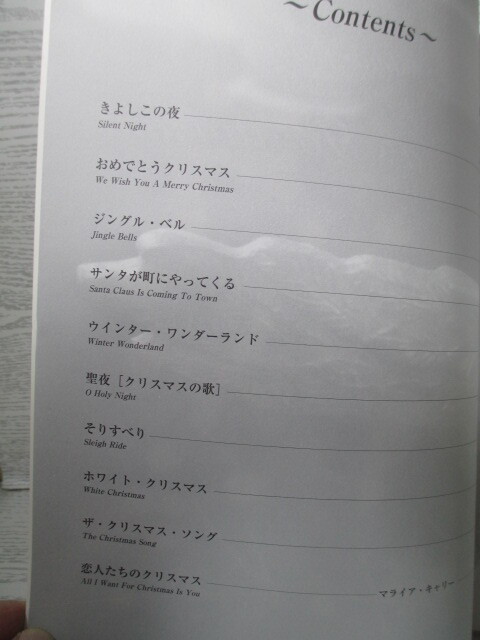 ～Contents～
きよしこの夜
Silent Night
おめでとうクリスマス
We Wish You A Merry Christmas
ジングル・ベル
Jingle Bells
サンタが町にやってくる
Santa Claus Is Coming To Town
ウインター・ワンダーランド
Winter Wonderland
聖夜［クリスマスの歌］
O Holy Night
そりすべり
Sleigh Ride
ホワイト・クリスマス
White Christmas
ザ・クリスマス・ソング
The Christmas Song
恋人たちのクリスマス マライア・キャリー
All I Want For Christmas Is You